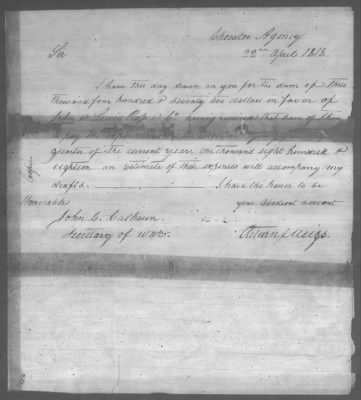 Cherokee Agency
Sir 22nd April 1818.
I have this day drawn on you for the sum of three
thousand four hundred & seventy two dollars in favor of
John & Lewis Ross & Co having received that sum of th
quarter of the current year, one thousand eight hundred &
eighteen an estimate of that expences will accompany my
drafts. I have the honor to be
Honorable your obedient servant
John C. Calhoun
Secretary of War. Return J Meigs.